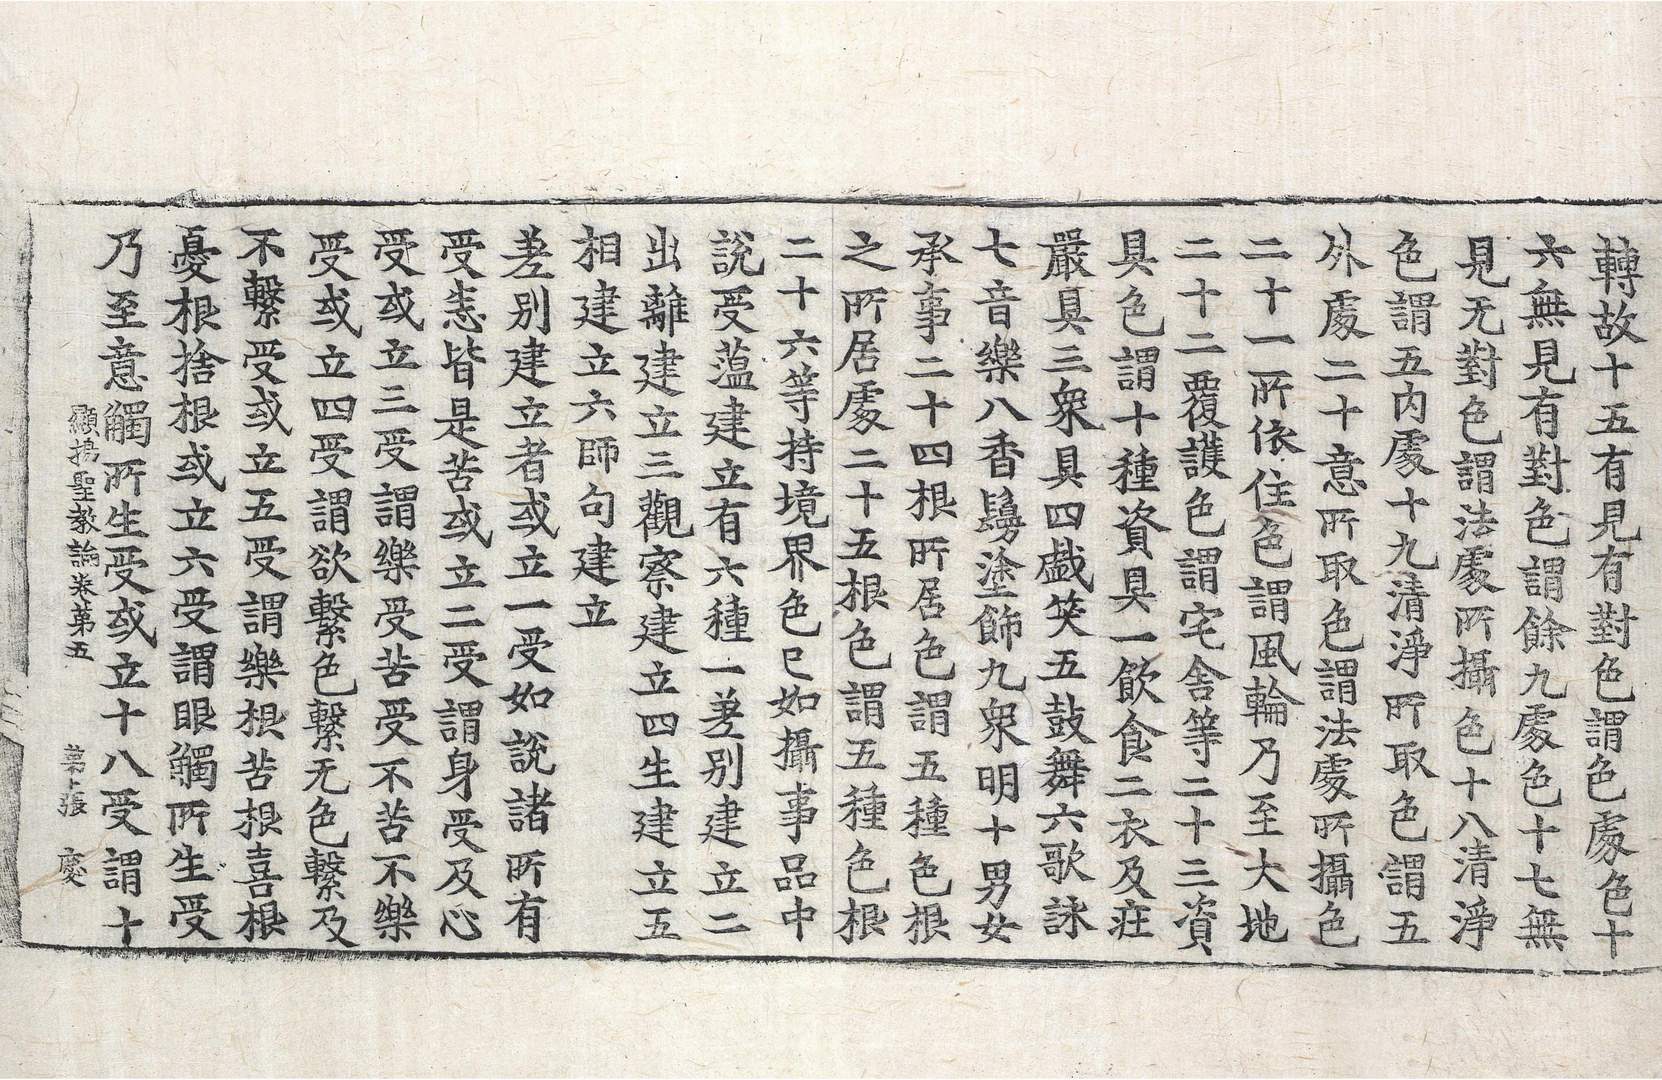 轉故十五有見有對色謂色處色十
六無見有對色謂餘九處色十七無
見无對色謂法處所攝色十八清淨
色謂五內處十九清淨所取色謂五
外處二十意所取色謂法處所攝色
二十一所依住色謂風輪乃至大地
二十二覆護色謂宅舍等二十三資
具色謂十種資具一飮食二衣及莊
嚴具三衆具四戱笑五鼓舞六歌詠
七音樂八香鬘塗飾九衆明十男女
承事二十四根所居色謂五種色根
之所居處二十五根色謂五種色根
二十六等持境界色已如攝事品中
說受薀建立有六種一差別建立二
出離建立三觀察建立四生建立五
相建立六師句建立
差別建立者或立一受如說諸所有
受悉皆是苦或立二受謂身受及心
受或立三受謂樂受苦受不苦不樂
受或立四受謂欲繫色繫无色繫及
不繫受或立五受謂樂根苦根喜根
憂根捨根或立六受謂眼觸所生受
乃至意觸所生受或立十八受謂十
顯揚聖教論卷第五 第十張 慶